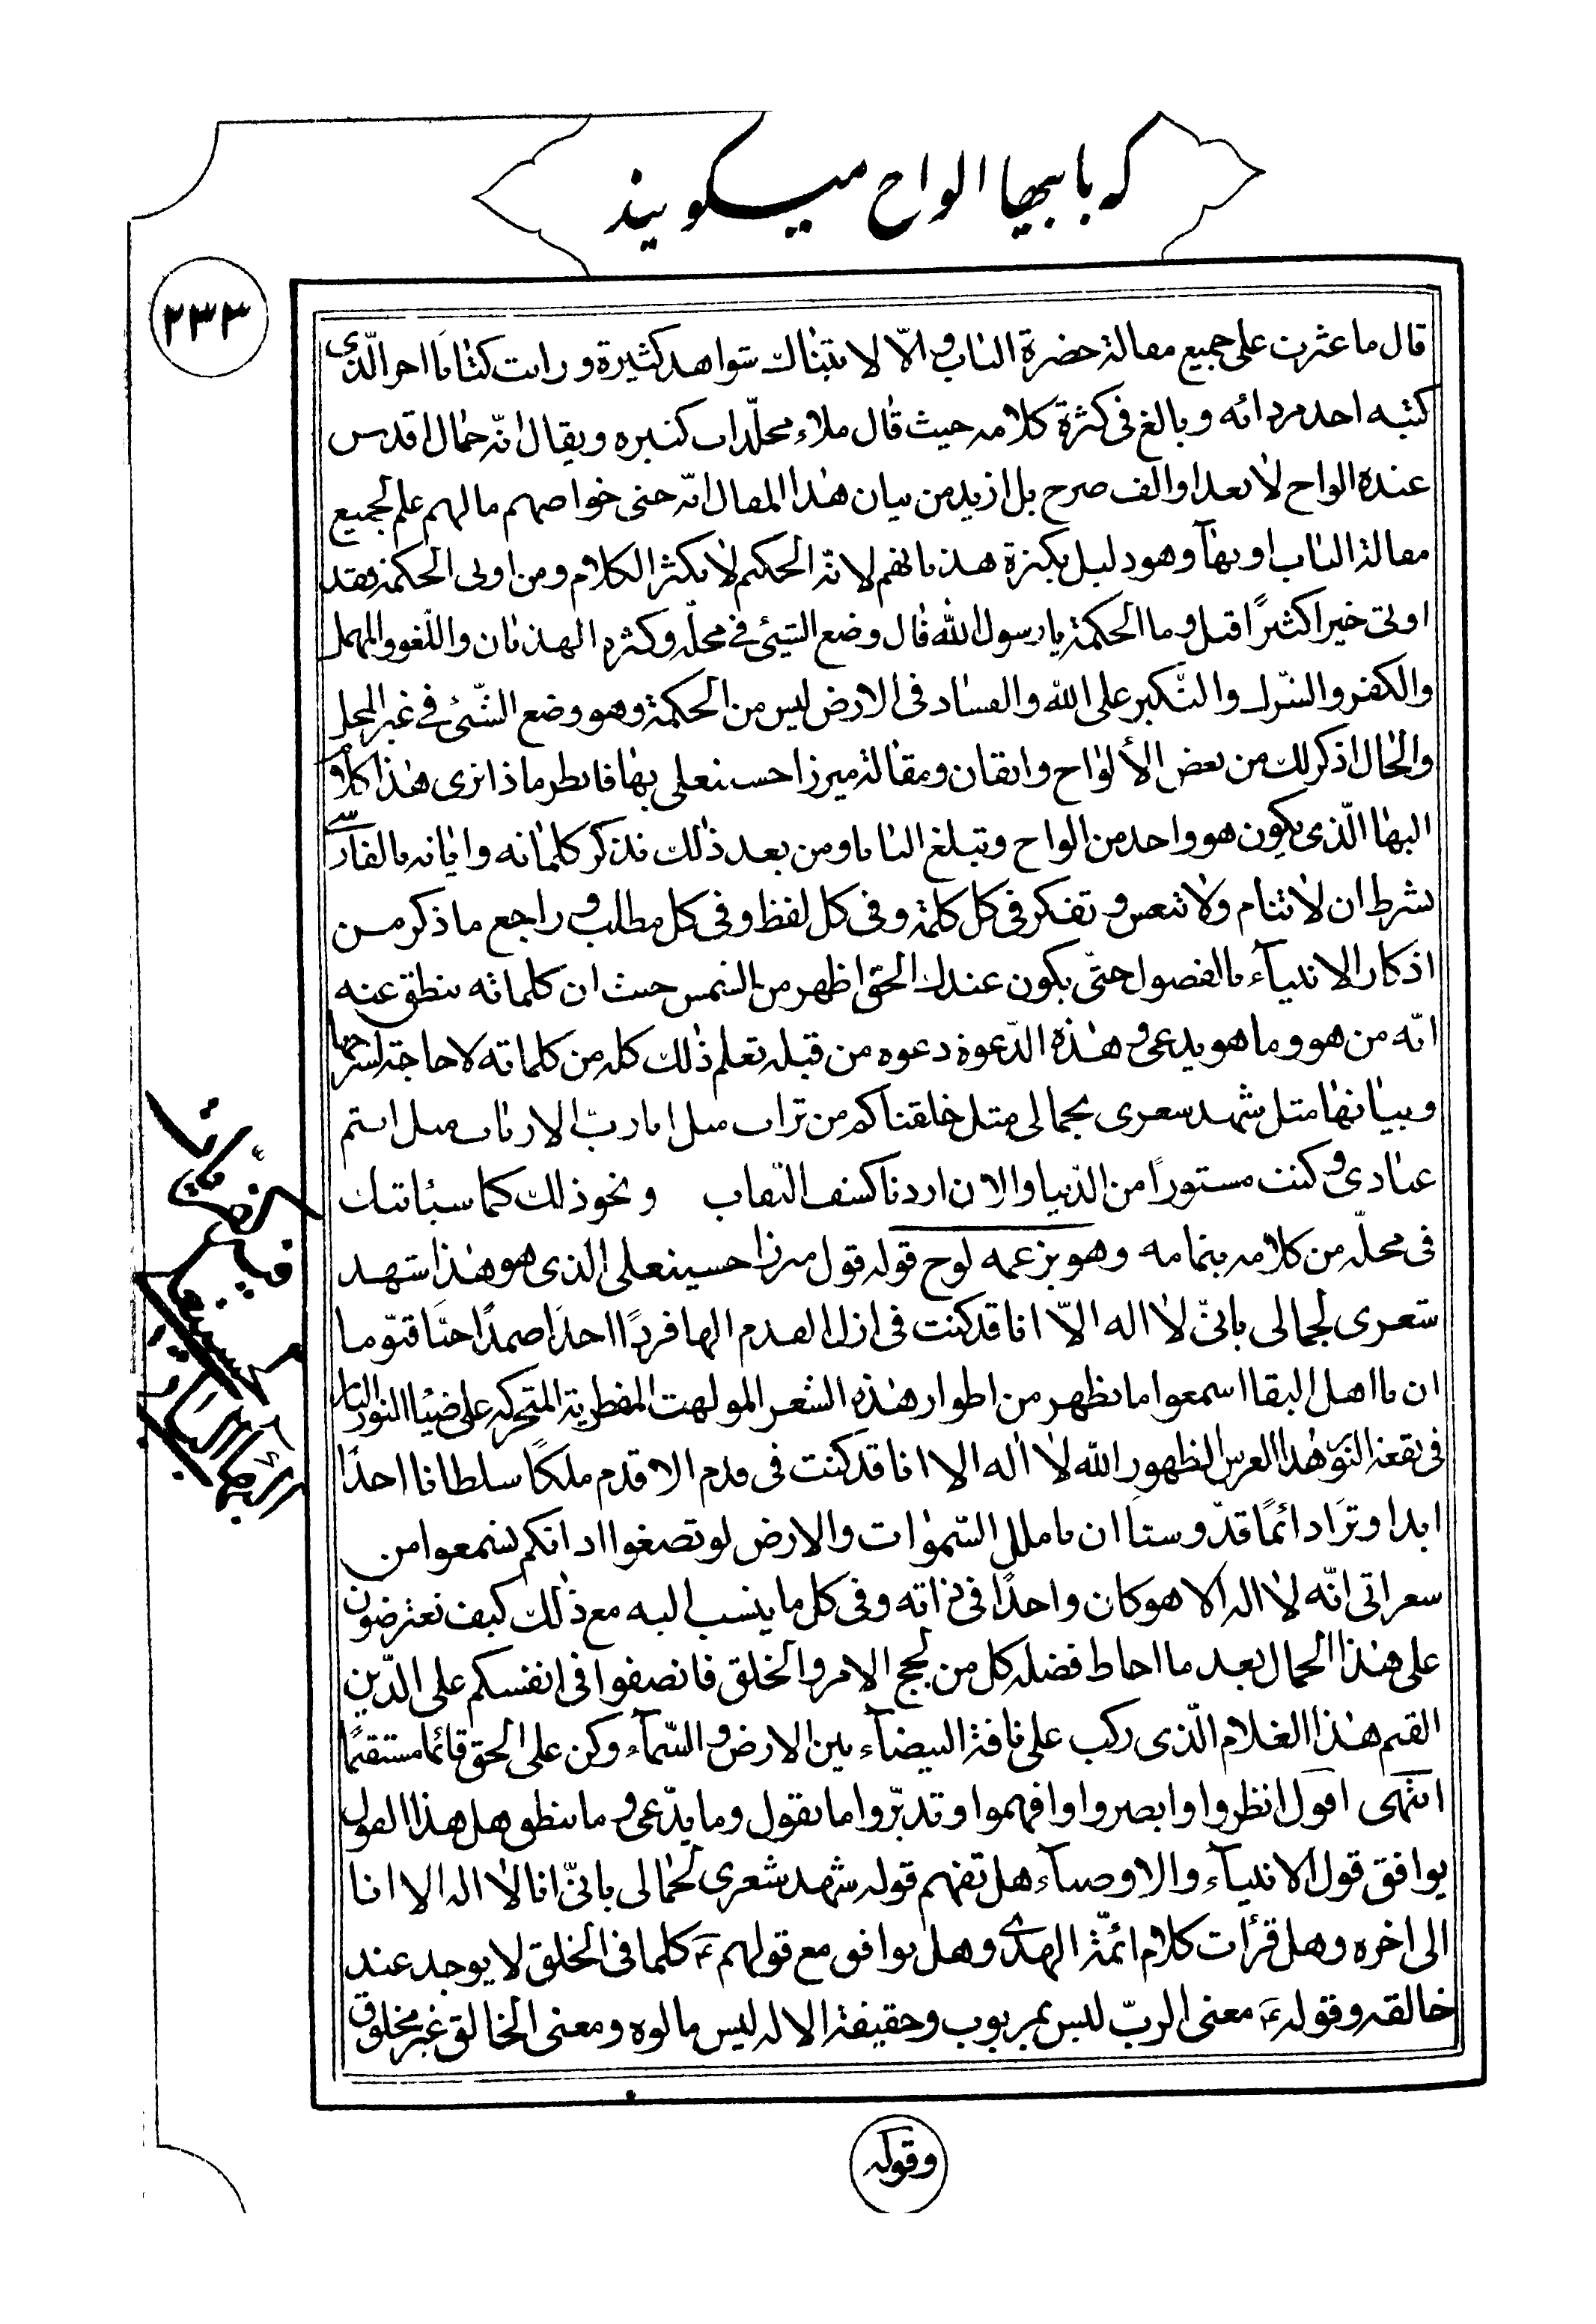 که بابیها الواح میکویند
۲۳۳
قال ما عثرت علی جمیع مقالة حضرة الباب و الّا لایتیناك شواهد کثیرة و رایت کتابًا اخر الّذی
کتبه احد مردائه و بالغ فی کثرة کلامه حیث قال ملاء مجلّدات کبیره و یقال انّه جمال اقدس
عنده الواح لا یعد او الف صرح بل ازید من بیان هذا المقال انّه حتی خواصهم ما لهم علم لجمیع
مقالة الباب او بهآ و هو دلیل بکثرة هذیانهم لانّه الحکیم لا یکثر الکلام و من اوتی الحکمة فقد
اوتی خیرا کثیرًا قیل و ما الحکمة یا رسول الله قال وضع الشیئ فی محلّه و کثره الهذیان و اللّغو و المهمل
والکفر و الشّرك والتّکبر علی الله والفساد فی الارض لیس من الحکمة و هو وضع الشّیئ فی غیر المحل
والحال اذکر لك من بعض الألواح و ایقان و مقالة میرزا حسینعلی بها فانظر ماذا تری هذا کلام
البها الّذی یکون هو واحد من الواح و تبلغ الینا و من بعد ذلك نذکر کلماته و ایاته بالفارسی
بشرط ان لا تنام و لا تنعس و تفکر فی کل کلمة و فی کل لفظ و فی کل مطلب و راجع ما ذکر من
اذکار الانبیآء بالفصول حتّی یکون عندك الحق اظهر من الشمس حیث ان کلماته ینطق عنه
انّه من هو و ما هو یدعی و هذه الدّعوة دعوه من قبله تعلم ذلك کله من کلماته لا حاجة لشرحها
و بیانها مثل شهد شعری بجمالی مثل خلقناکم من تراب مثل انا ربّ الارباب مثل انتم
عبادی و کنت مستورًا من الدّنیا والان اردنا کشف النّقاب و نحو ذلك کما سیاتیك
فی محلّه من کلامه بتمامه و هو بزعمه لوح قوله قول میرزا حسینعلی الذی هو هذا شهد
شعری لجمالی بانّی لا اله الّا انا قد کنت فی ازل القدم الها فردًا احدًا صمدًا حیًا قیّوما
ان یا اهل البقا اسمعوا ما یظهر من اطوار هذه الشعر المولهت المضطریة المتحرکه علی ضیاء النور النار
فی بقعة النور هذا العرش الظهور الله لا اله الا انا قد کنت فی قدم الاقدم ملکًا سلطانا احدًا
ابدا وترًا دائمًا قدّوسًا ان یا ملل السّموات والارض لو تصغوا اذانکم لتسمعوا من
شعراتی انّه لا اله الا هو کان واحدًا فی ذاته و فی کل ما ینسب الیه مع ذلك کیف تعترضون
علی هذا الجمال بعد ما احاط فضله کل من لجج الامر والخلق فانصفوا فی انفسکم علی الدّین
القیم هذا الغلام الّذی رکب علی ناقة البیضآء بین الارض و السّمآء و کن علی الحق قائما مستقیمًا
انتهی اقول انظروا و ابصروا و افهموا و تدبّروا ما یقول و ما یدّعی و ما ینطق هل هذا القول
یوافق قول الانبیآء والاوصیآء هل تفهم قوله شهد شعری لجمالی بانّی انا لا اله الا انا
الی اخره و هل قرأت کلام ائمّة الهدی و هل یوافق مع قولهم ع کلما فی الخلق لا یوجد عند
خالقه و قوله ع معنی الربّ لیس بمربوب و حقیقة الاله لیس مالوه و معنی الخالق غیر مخلوق
وقوله